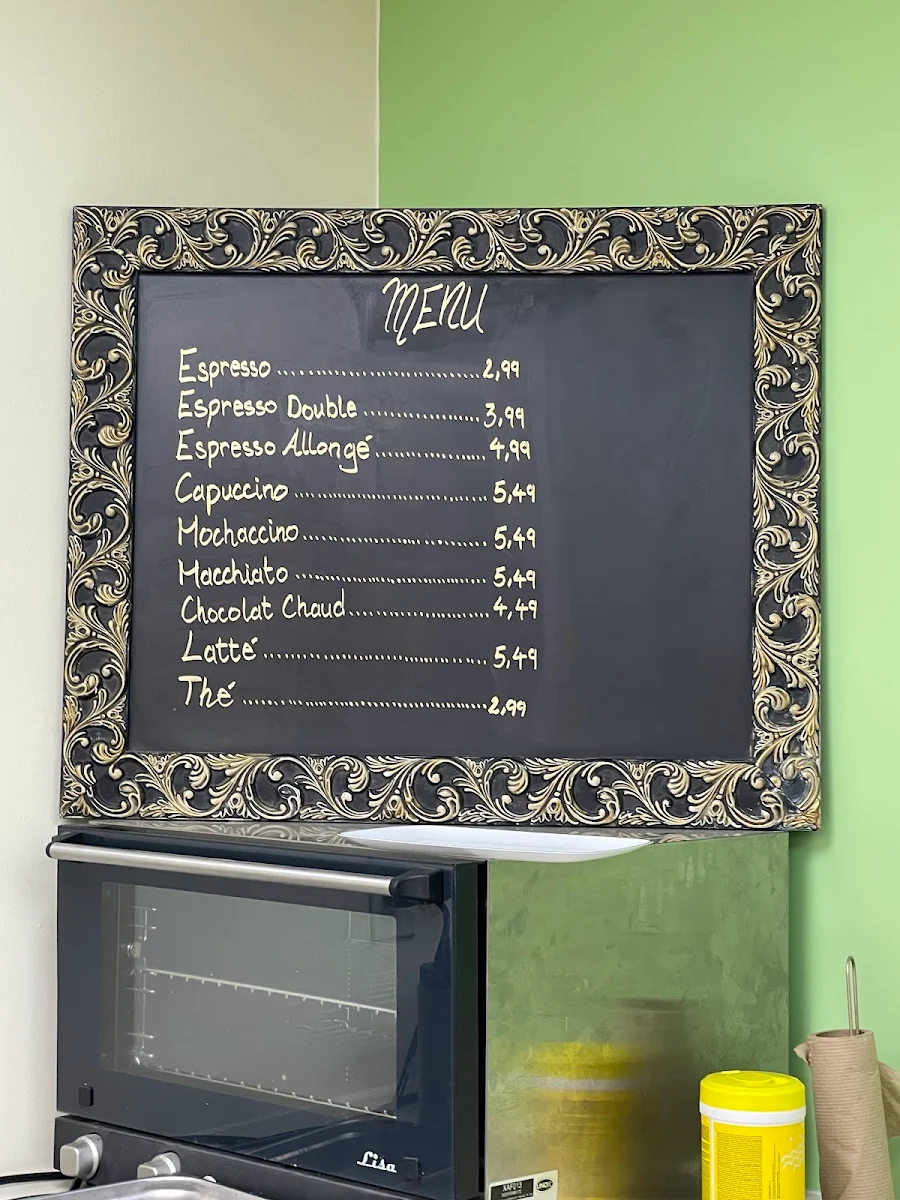 MENU
Espresso ............................ 2,99
Espresso Double ................. 3,99
Espresso Allongé ................ 4,99
Capuccino ............................ 5,49
Mochaccino .......................... 5,49
Macchiato ............................ 5,49
Chocolat Chaud .................... 4,49
Latté .................................. 5,49
Thé ..................................... 2,99
Lisa
XAF013
UNOX